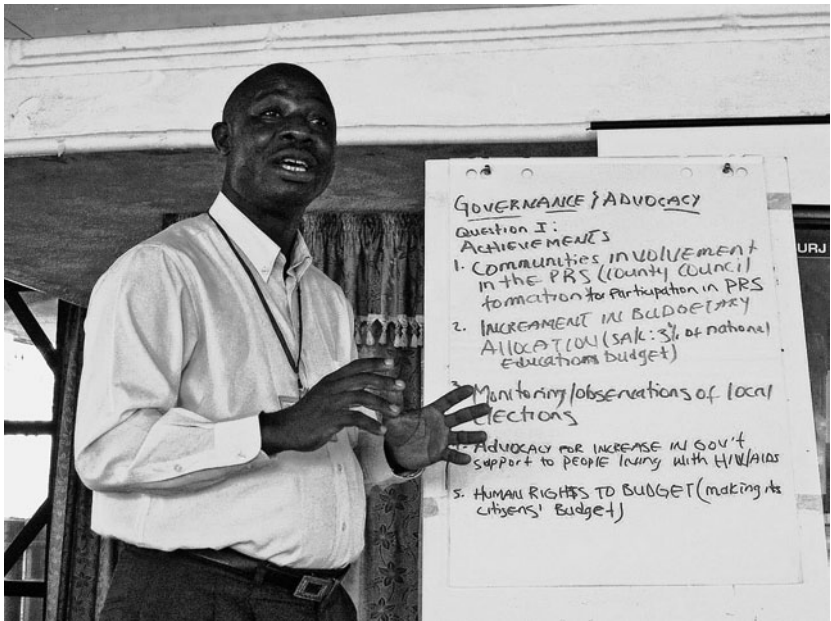 GOVERNANCE & ADVOCACY
Question I:
ACHIEVEMENTS
1. COMMUNITIES INVOLVEMENT
in the PRS (County Council
formation for Participation in PRS
2. INCREAMENT IN BUDGETARY
ALLOCATION (SA/L: 3% of national
Education budget)
3. Monitoring/observations of local
elections
4. ADVOCACY FOR INCREASE IN GOV't
support to PEOPLE living with HIV/AIDS
5. HUMAN RIGHTS TO BUDGET (making its
citizens' Budget)
URJ